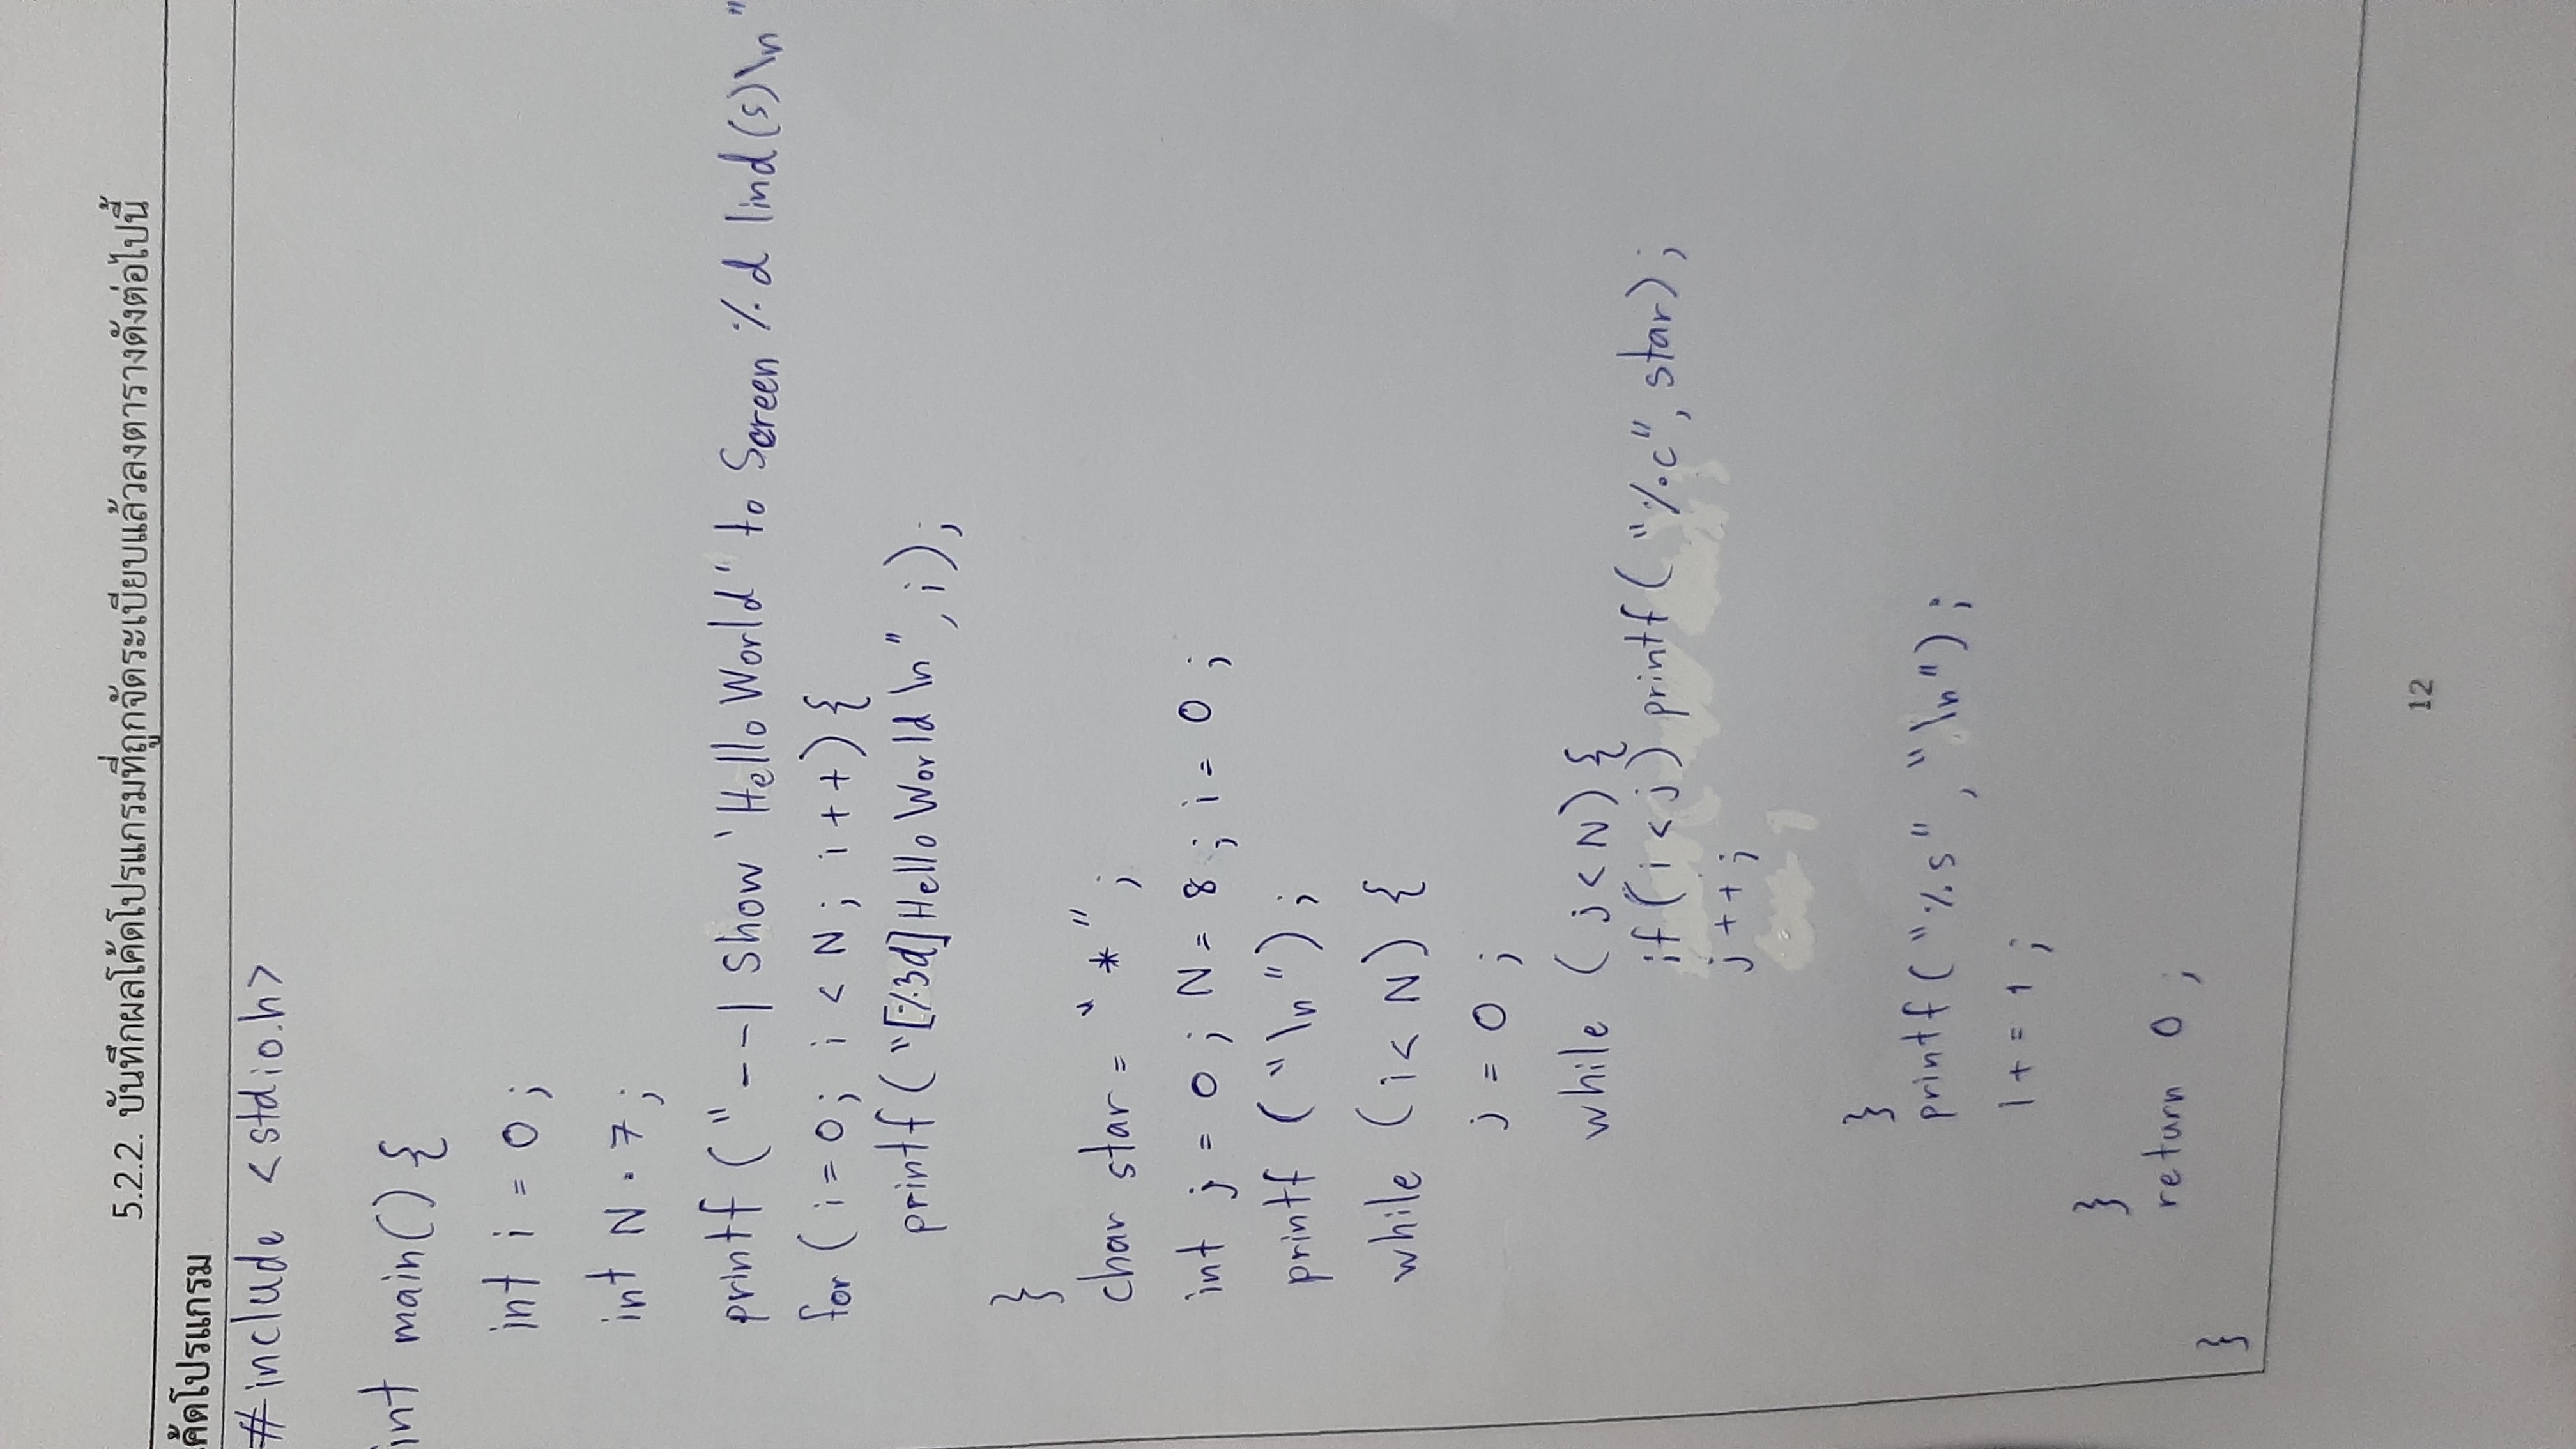 5.2.2. บันทึกผลโค้ดโปรแกรมที่ถูกจัดระเบียบแล้วลงตารางดังต่อไปนี้
ค้ดโปรแกรม
#include <stdio.h>
int main() {
int i = 0 ;
int N = 7 ;
printf ("--| Show 'Hello World' to Screen %d lind(s)\n"
for ( i = 0 ; i < N ; i ++) {
printf ("[%3d] Hello World \n", i ) ;
}
char star = "*" ;
int j = 0 ; N = 8 ; i = 0 ;
printf ("\n") ;
while ( i < N) {
j = 0 ;
while ( j < N) {
if ( i < j) printf ( "%c", star) ;
j ++ ;
}
printf ("%s" , "\n") ;
i += 1 ;
}
return 0 ;
}
12